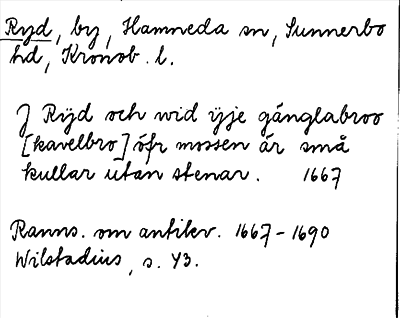 Ryd, by, Hamneda sn, Sunnerbo
hd, Kronob. l.
J Rÿd och wid ÿje gånglabroo
[kavelbro] öfr mossen är små
kullar utan stenar. 1667
Ranns. om antikv. 1667-1690
Wilstadius, s. 43.